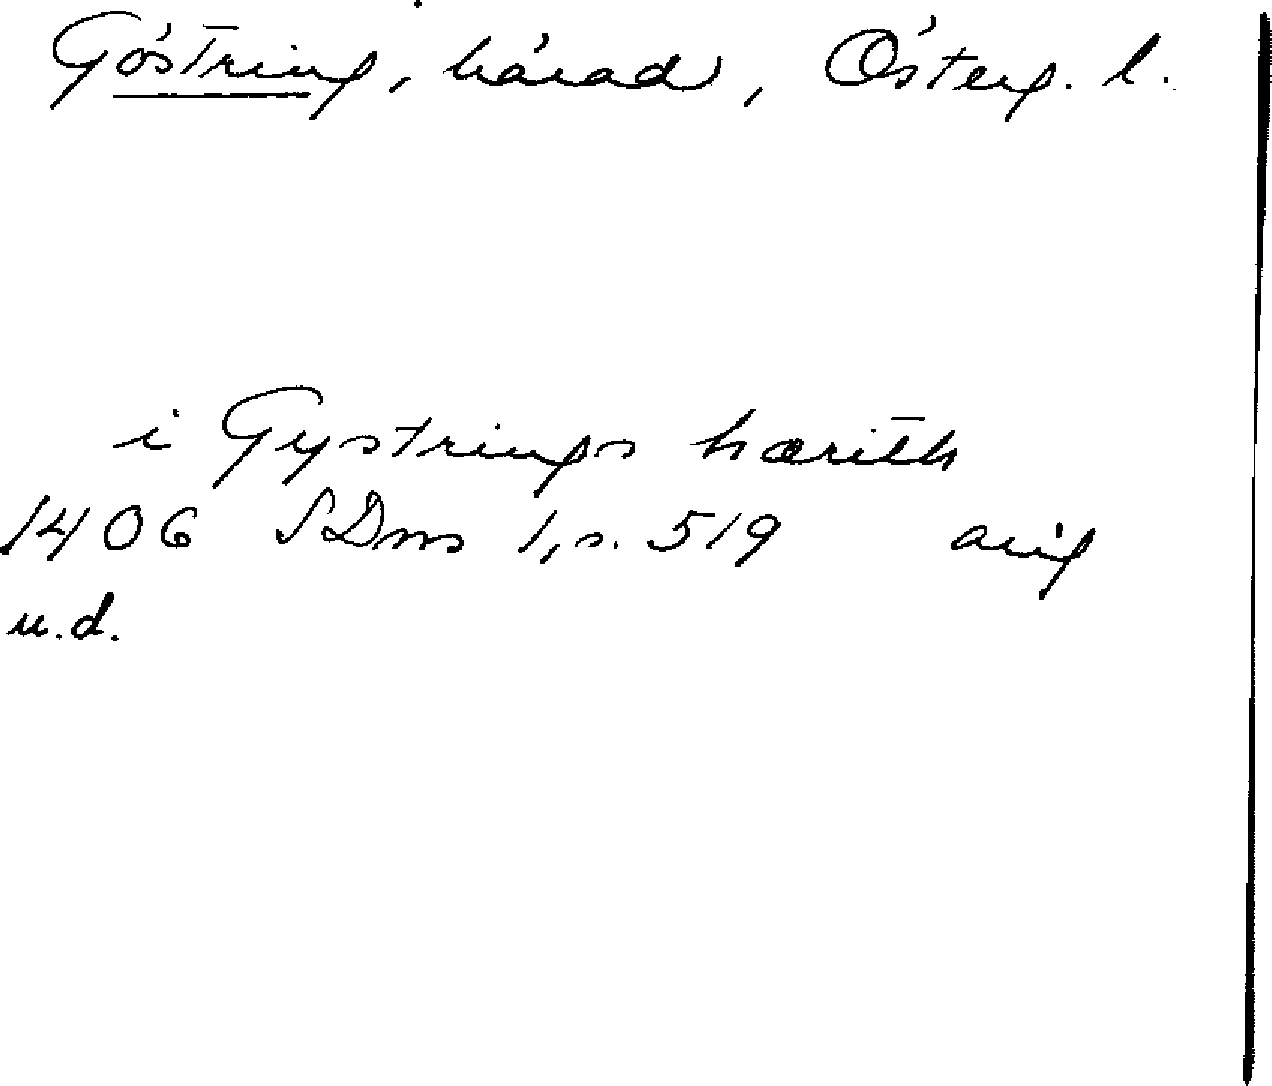 Göstring, härad, Österg. l.
i Gystrings hærith
1406 SDns 1, s. 519 avig
u.d.